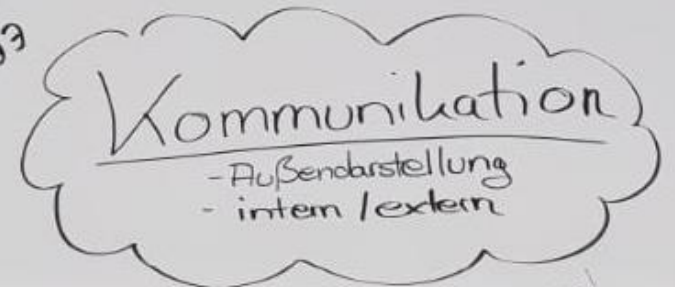 Kommunikation
- Außendarstellung
- intern / extern